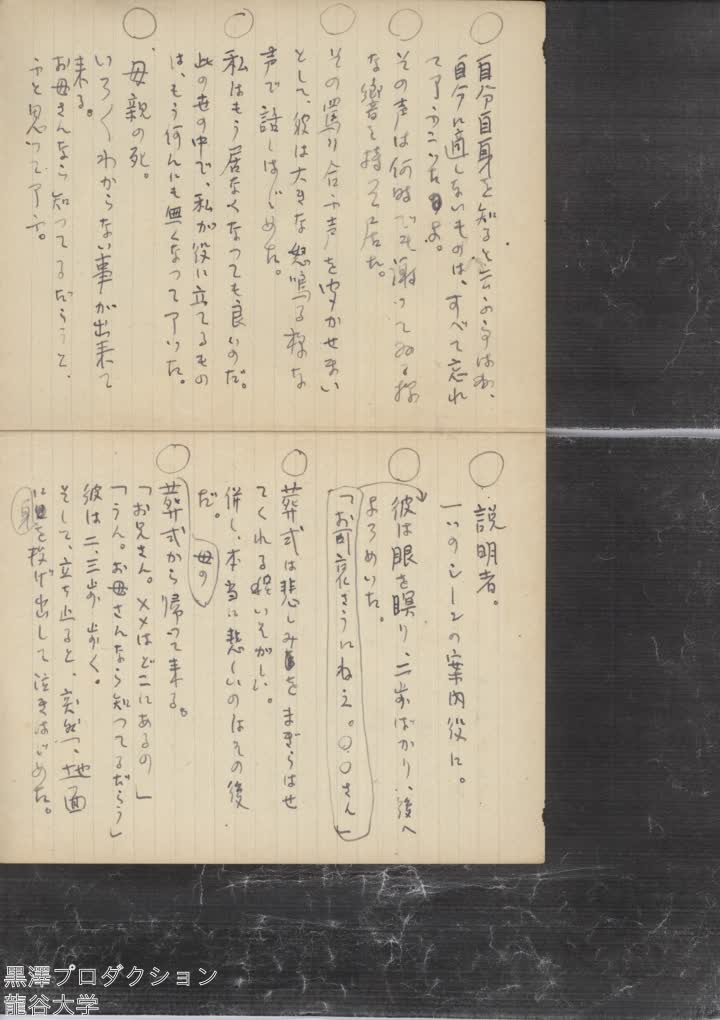 自分自身を知ると云ふ事はね、
自分に適しないものは、すべて忘れ
て了ふこったよ。
その声は何時でも謝ってゐる様
な響を持って居た。
その罵り合ふ声を聞かせまい
として、彼は大きな怒鳴る様な
声で話しはじめた。
私はもう居なくなっても良いのだ。
此の世の中で、私が役に立てるもの
は、もう何んにも無くなって了いた。
母親の死。
いろ〱わからない事が出来て
来る。
お母さんなら知ってるだらうと、
ふと思って了ふ。
説明者。
一つのシーンの案内役に。
彼は眼を瞑り、二歩ばかり、後へ
よろめいた。
「お可哀さうにねえ。〇〇さん」
葬式は悲しみをまぎらはせ
てくれる程いそがしい。
併し、本当に悲しいのはその後
だ。
母の
葬式から帰って来る。
「お兄さん。××はどこにあるの」
「うん。お母さんなら知ってるだらう」
彼は二、三歩歩く。
そして、立ち止ると、突然、地面
に身を投げ出して泣きはじめた。
黒澤プロダクション
龍谷大学